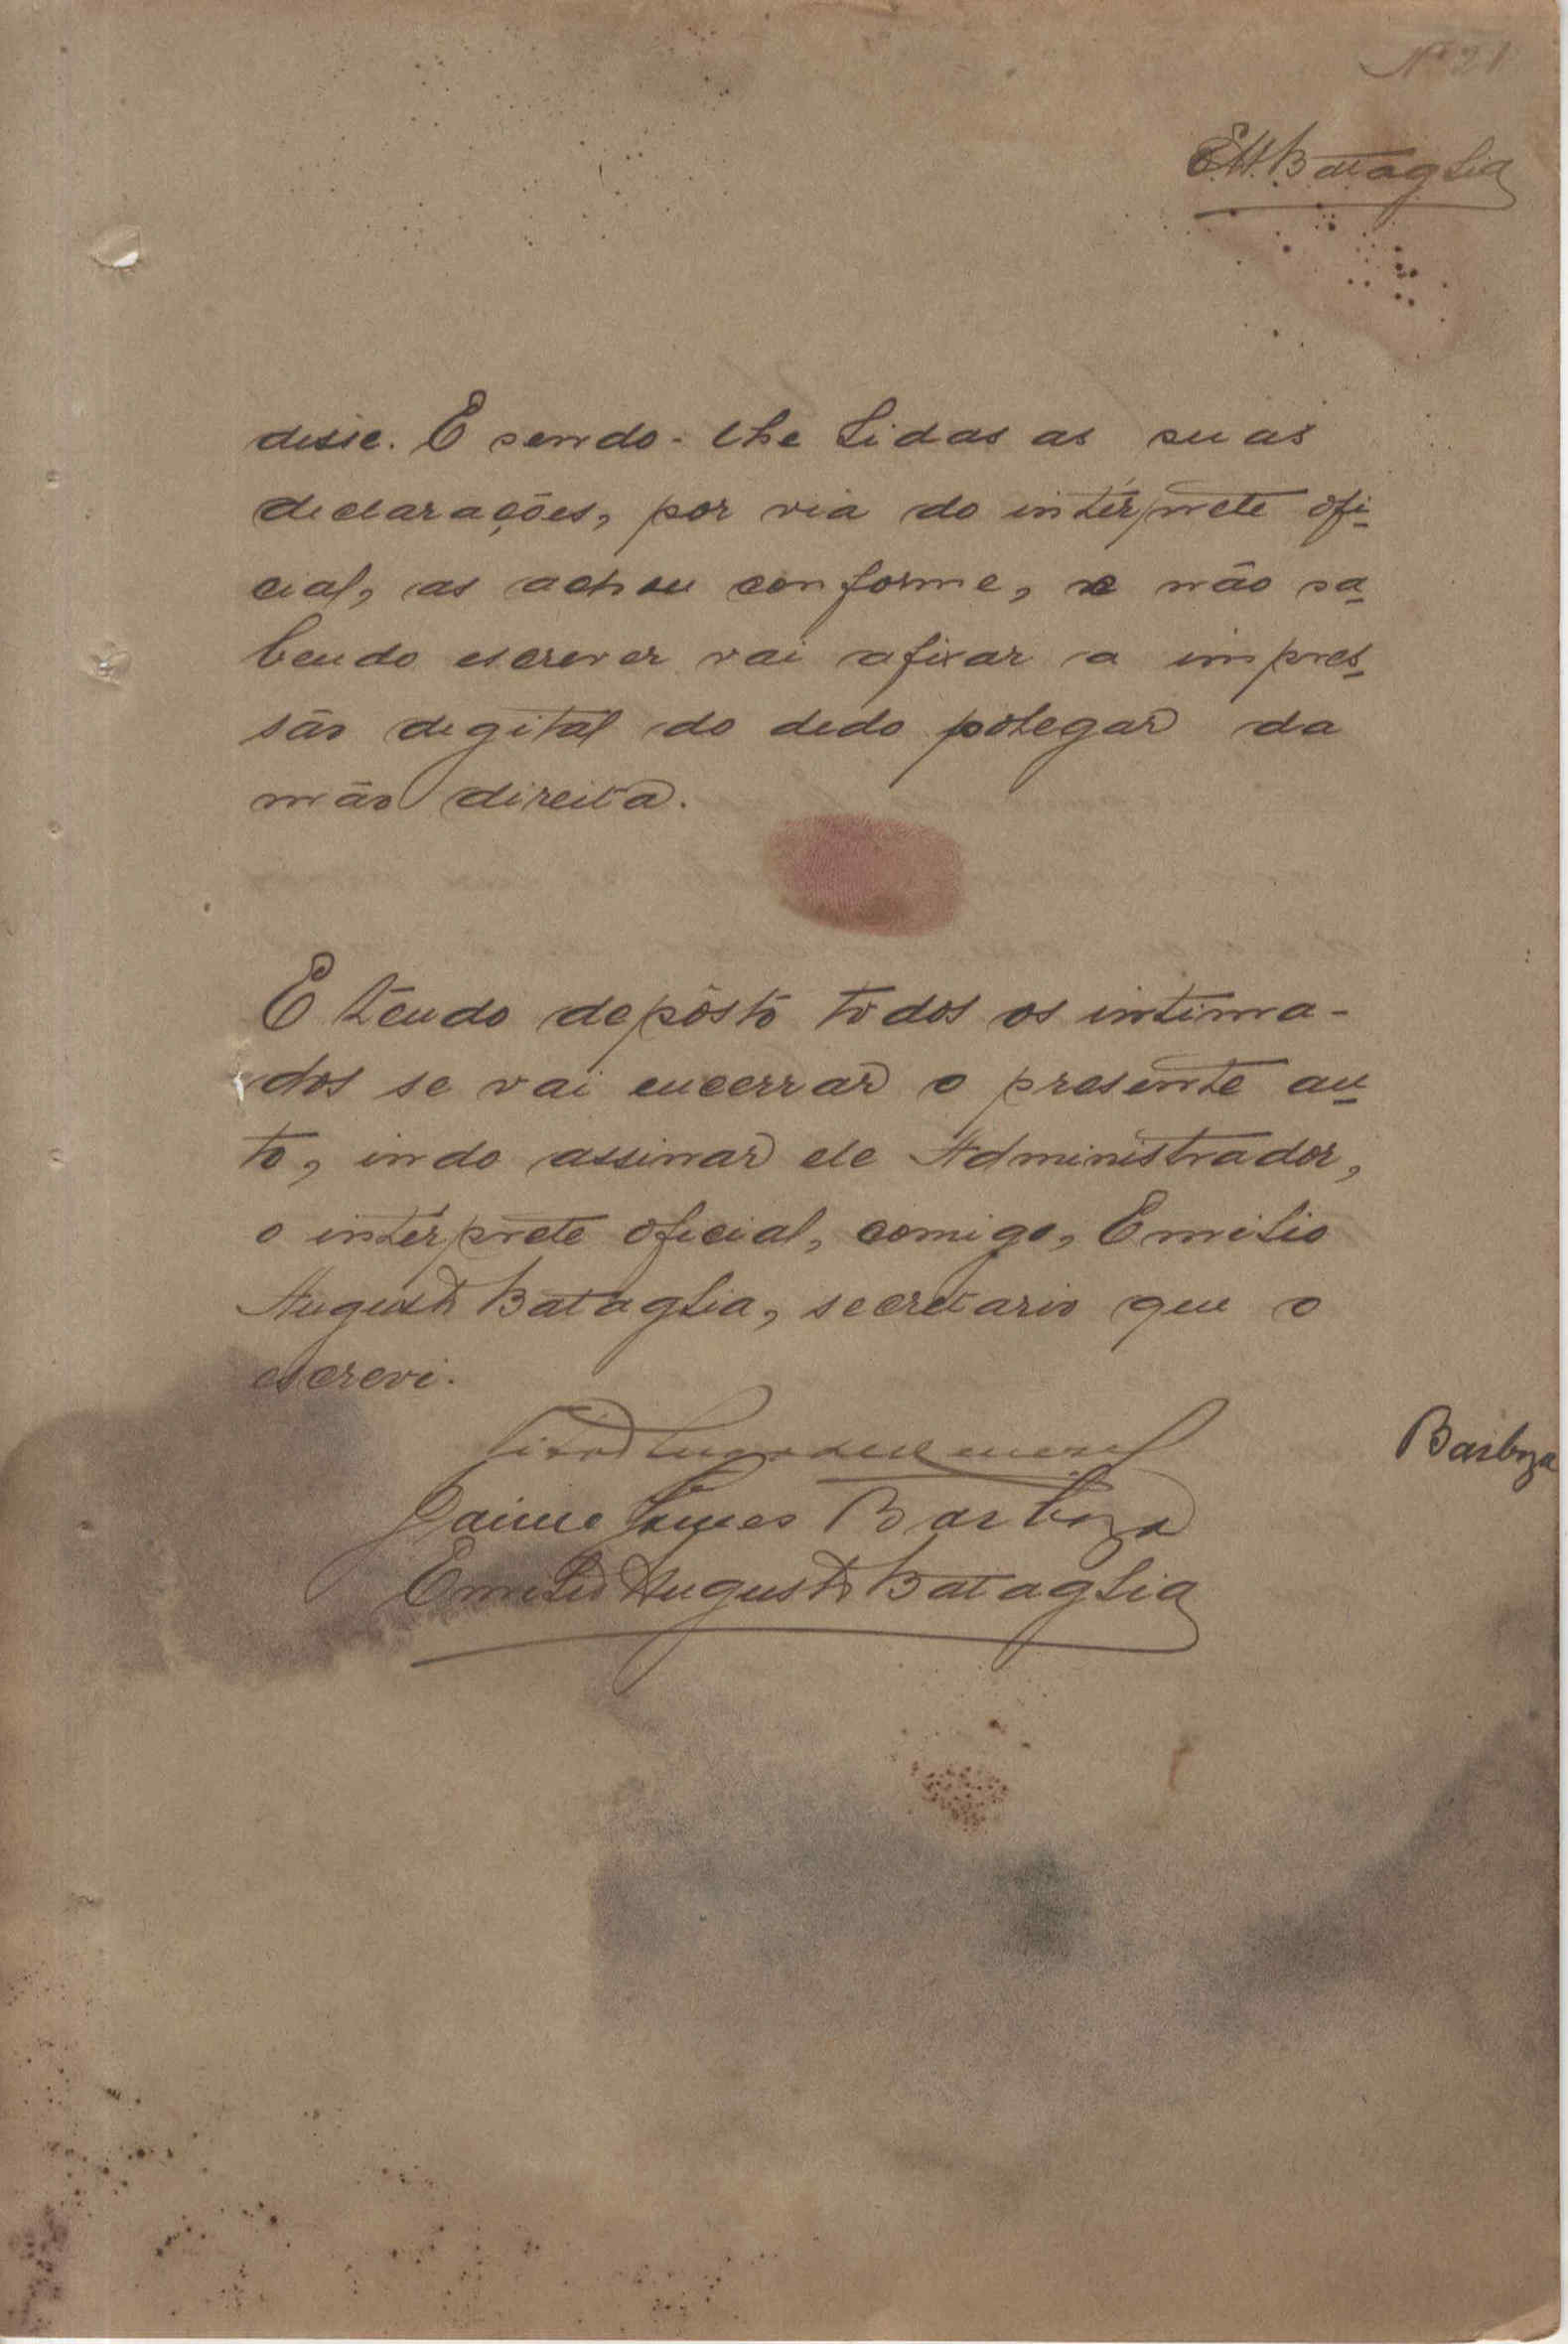 Nº 21
E.A. Bataglia
disse. E sendo-lhe lidas as suas
declarações, por via do intérprete ofi-
cial, as achou conforme, e não sa-
bendo escrever vai afixar a impres-
são degital do dedo polegar da
mão direita.
E tendo depôsto todos os intima-
dos se vai encerrar o presente au-
to, indo assinar ele Administrador,
o intérprete oficial, comigo, Emilio
Augusto Bataglia, secretario que o
escrevi.
Barboza
Jaime Gomes Barboza
Emilio Augusto Bataglia